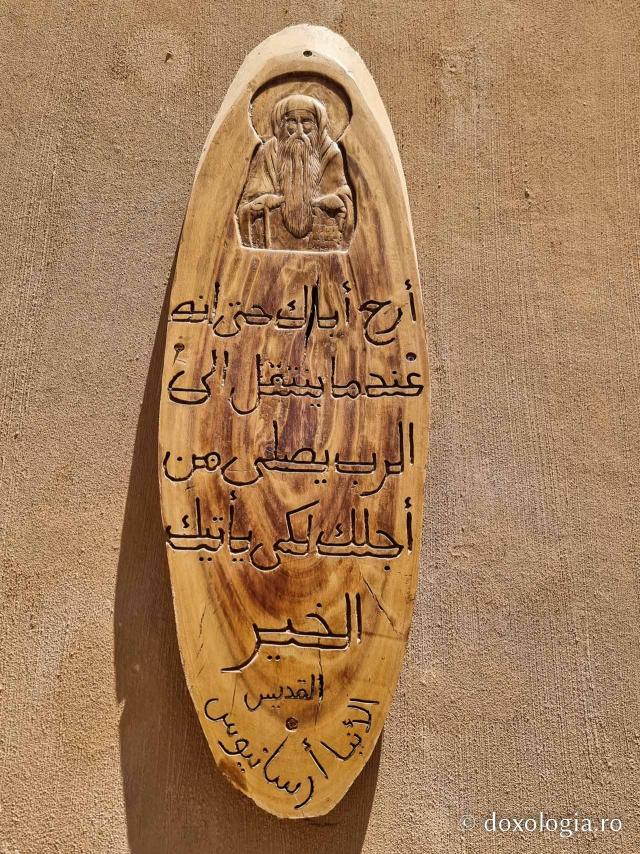 أرح أباك حتى أنه
عندما ينتقل الى
الرب يصلى من
أجلك لكى يأتيك
الخير
القديس
الأنبا أرسانيوس
© doxologia.ro